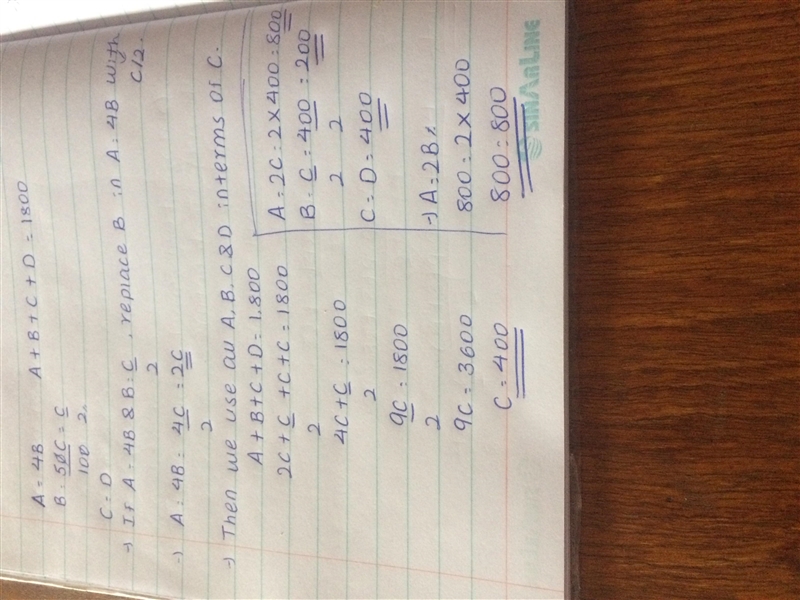 A = 4B A + B + C + D = 1800
B = 50C = C
100 2
C = D
→ If A = 4B & B = C , replace B in A = 4B with
2 C/2.
→ A = 4B = 4C = 2C
2
→ Then we use all A, B, C & D interms of C.
A + B + C + D = 1,800
2C + C + C + C = 1800
2
4C + C = 1800
2
9C = 1800
2
9C = 3600
C = 400
A = 2C = 2 × 400 = 800
B = C = 400 = 200
2 2
C = D = 400
→ A = 2B
800 = 2 × 400
800 = 800
SINARLINE